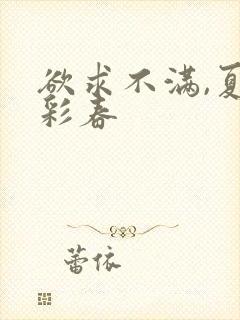 欲求不满,夏
彩春
蕾依